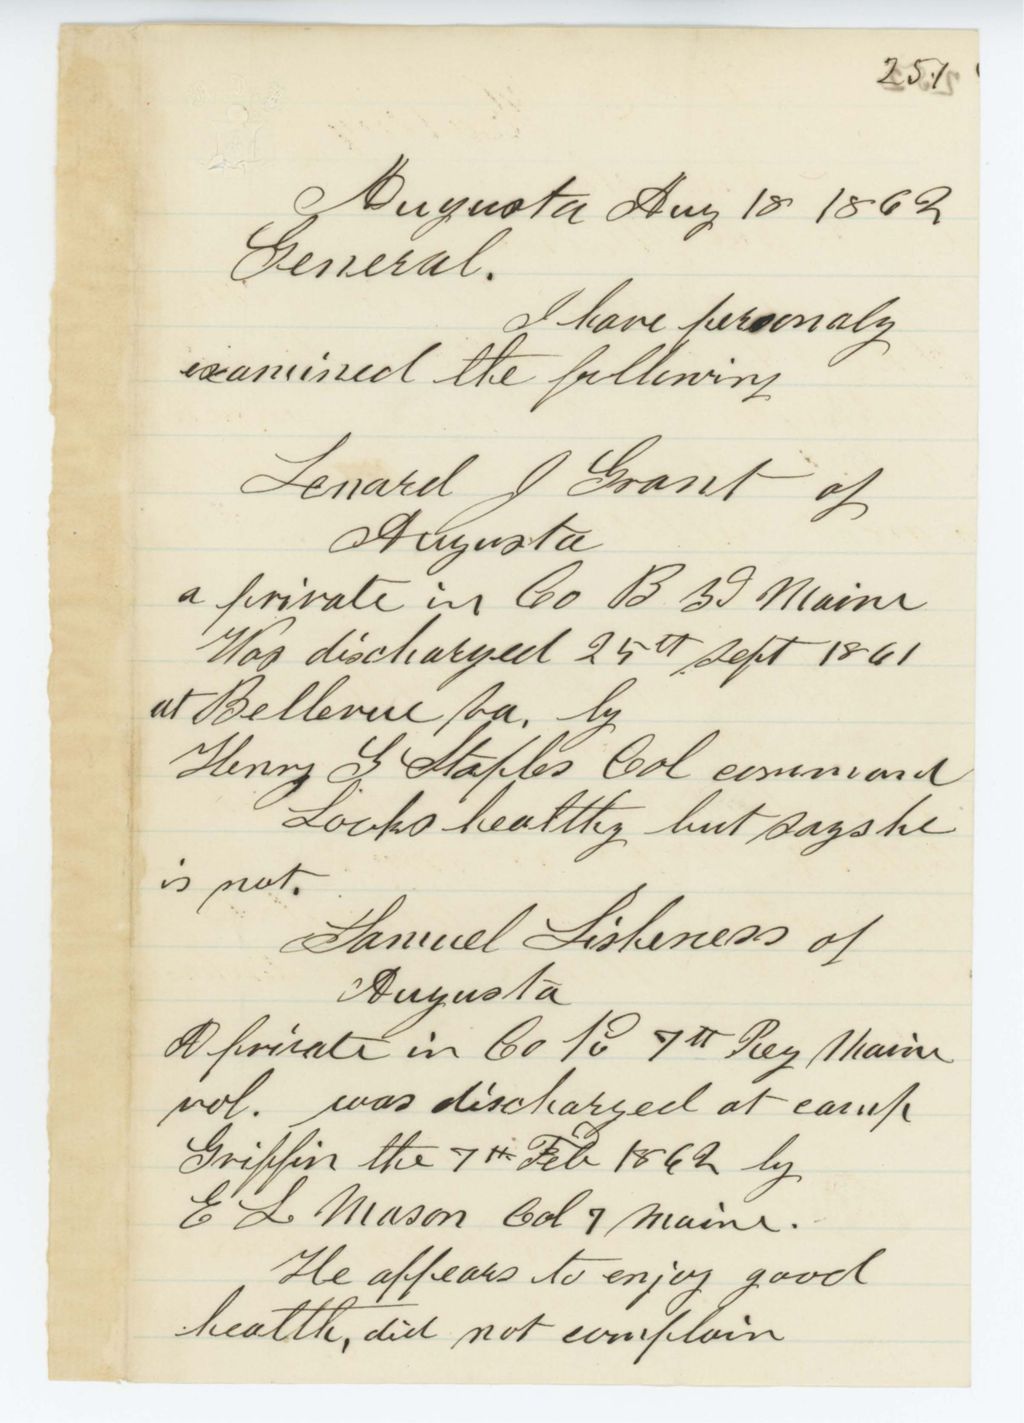 251
Augusta Aug 18 1862
General.
I have personaly
examined the following
Lenard J Grant of
Augusta
a private in Co B 3d Maine
Was discharged 25th Sept 1861
at Bellevue Va. by
Henry G Staples Col command
Looks healthy but says he
is not.
Samuel Lishness of
Augusta
A private in Co 7th Reg Maine
vol. was discharged at camp
Griffin the 7th Feb 1862 by
E L Mason Col 7 Maine.
He appears to enjoy good
health, did not complain